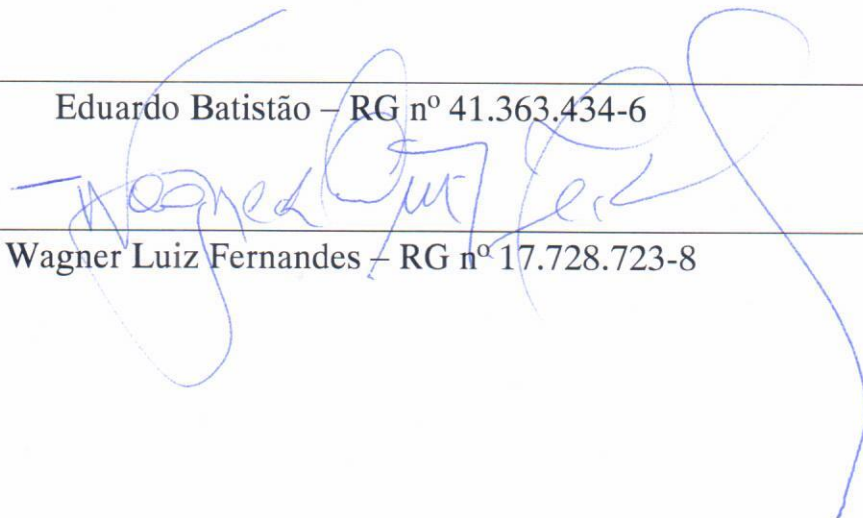 Eduardo Batistão – RG nº 41.363.434-6
Wagner
Wagner Luiz Fernandes – RG nº 17.728.723-8